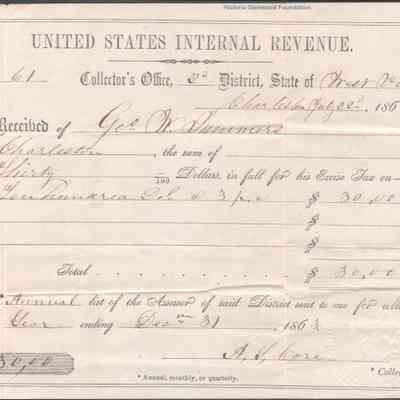 Historic Glenwood Foundation
UNITED STATES INTERNAL REVENUE.
61 Collector's Office, 2d District, State of West Va
Charleston July 22d, 186
Received of Geo. W. Summers
Charleston, the sum of
Thirty /100 Dollars, in full for his Excise Tax on—
Ten Hundred Dol @ 3 p. c $ 30,00
$
$
Total $ 30,00
* Annual list of the Assessor of said District sent to me for
Year ending Decem 31, 1863
30,00 A. S. Core
* Annual, monthly, or quarterly. * Collec